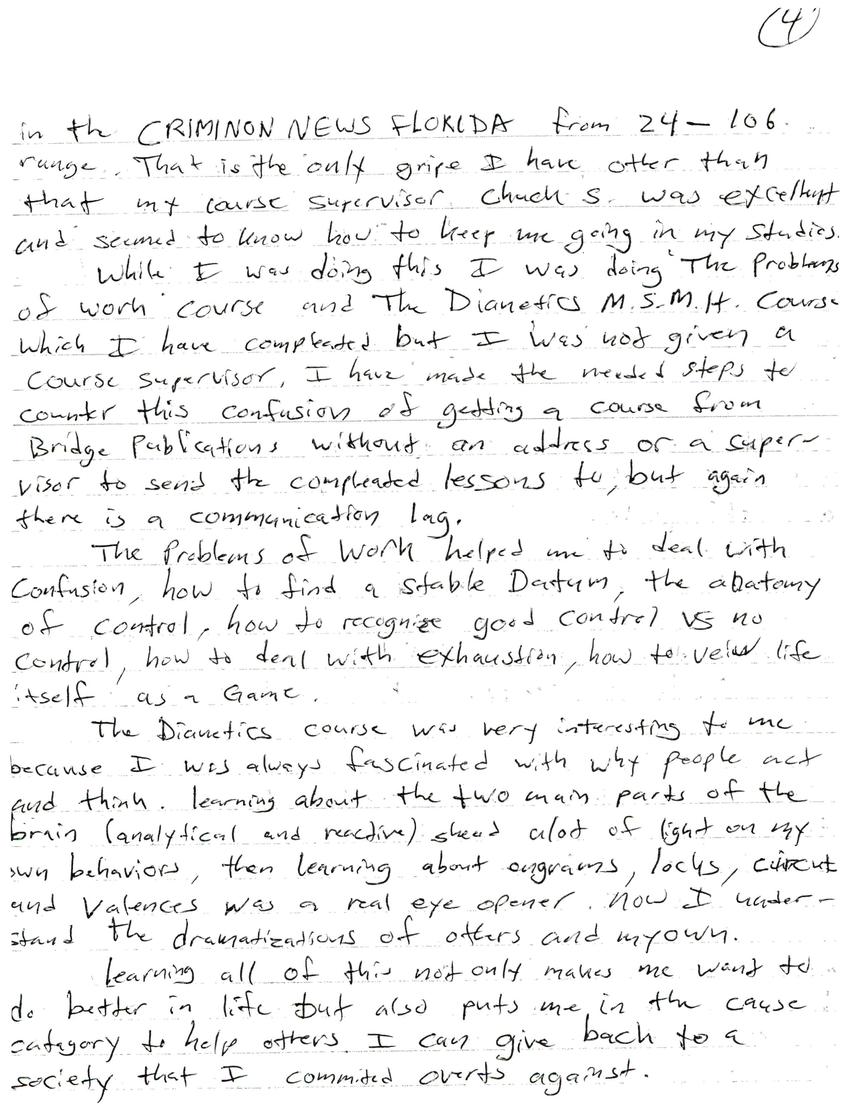 (4)
in the CRIMINON NEWS FLORIDA from 24 – 106
range. That is the only gripe I have other than
that my course supervisor Chuck S. was excellent
and seemed to know how to keep me going in my studies.
While I was doing this I was doing The Problems
of work course and The Dianetics M.S.M.H. Course
which I have compleated but I was not given a
course supervisor. I have made the needed steps to
counter this confusion of getting a course from
Bridge Publications without an address or a super-
visor to send the compleated lessons to, but again
there is a communication lag.
The Problems of Work helped me to deal with
Confusion, how to find a stable Datum, the abatomy
of control, how to recognize good control vs no
control, how to deal with exhaustion, how to veiw life
itself as a Game.
The Dianetics course was very interesting to me
because I was always fascinated with why people act
and think. learning about the two main parts of the
brain (analytical and reactive) shead alot of light on my
own behaviors, then learning about engrams, locks, circut
and Valences was a real eye opener. now I under-
stand the dramatizations of others and my own.
learning all of this not only makes me want to
do better in life but also puts me in the cause
catagory to help others. I can give back to a
society that I commited overts against.